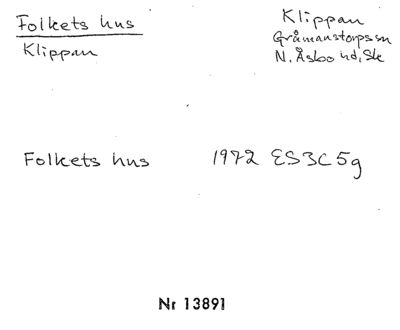 Folkets hus
Klippan
Klippan
Gråmanstorps sn
N. Åsbo hd, Sk
Folkets hus 1972 ES3C5g
Nr 13891